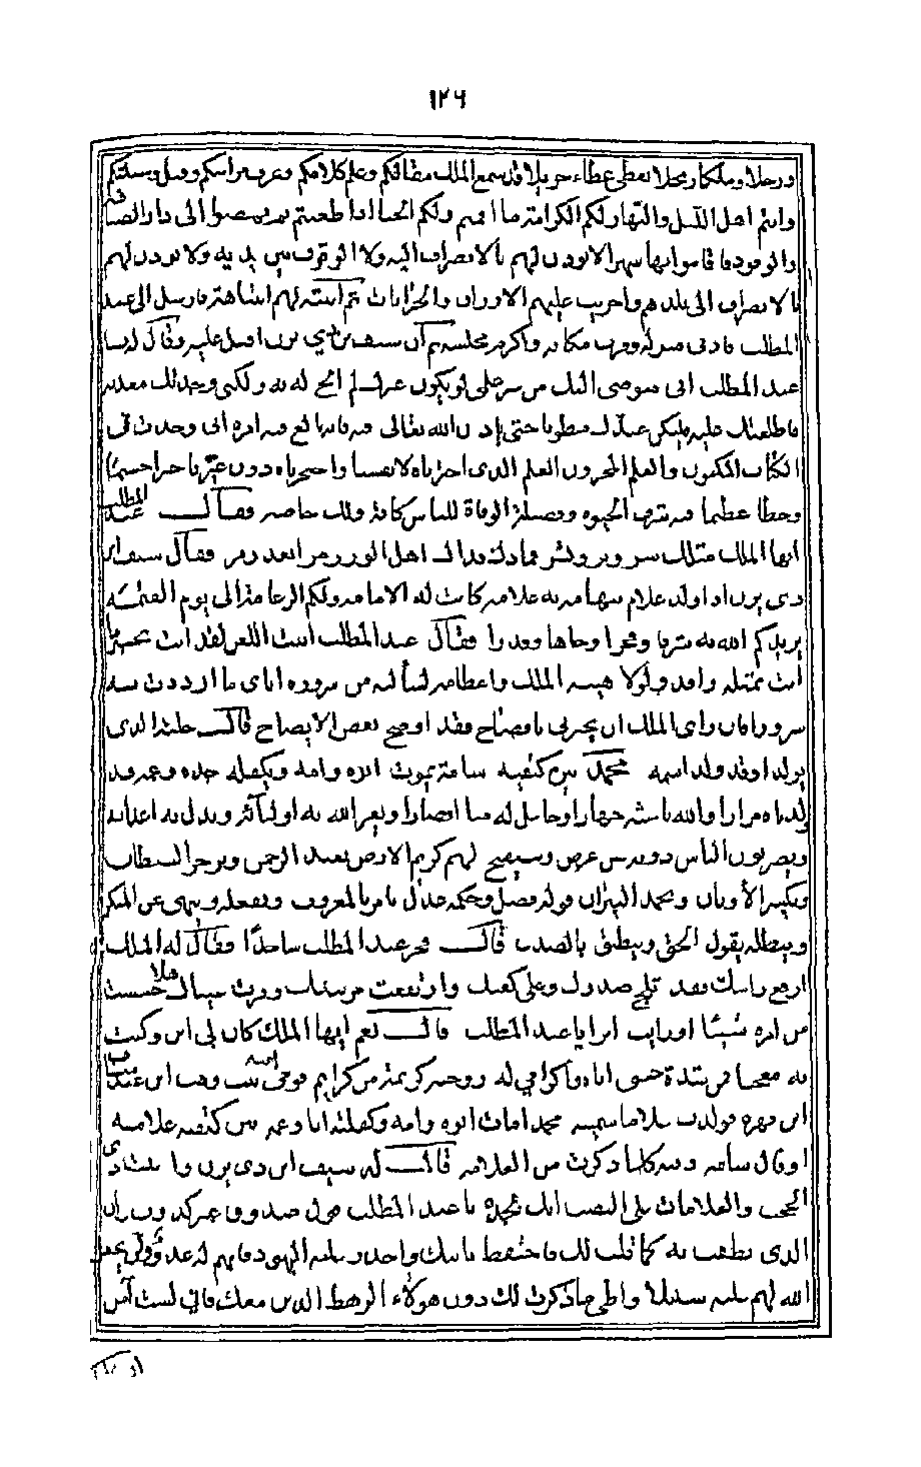 ١٢٦
ورحلا وملكا ربحلا يعطي عطاء جزيلا قد سمع الملك مقالتكم وعلم كلامكم وعرف قرابتكم وقبل وسيلتكم
وانتم اهل الليل والنهار لكم الكرامة ما اقمتم ولكم الحبا اذا ظعنتم ثم نهضوا الى دار الضيافة
والوفود فاقاموا بها شهرا لا يؤذن لهم بالانصراف اليه ولا الوقوف بين يديه ولا يؤذن لهم
بالانصراف الى بلدهم واجريت عليهم الارزاق والجرايات ثم انتبه لهم انتباهة فارسل الى عبد
المطلب فادنى منزله وقرب مكانه واكرم مجلسه ثم ان سيف بن ذي يزن اقبل عليه وقال له يا
عبد المطلب اني مفوض اليك من سر علمي لو يكون غيرك لم ابح له به ولكني وجدتك معدنه
فاطلعتك عليه فليكن عندك مطويا حتى ياذن الله تعالى فيه فان الله بالغ فيه امره اني وجدت في
الكتاب المكنون والعلم المخزون العلم الذي اخترناه لانفسنا واحتجبناه دون غيرنا خبرا جسيما
وخطا عظيما فيه شرف الحيوة وفضيلة الوفاة للناس كافة ولك خاصة فقال عبد المطلب
ايها الملك مثلك سر وبر وبشر فما ذاك فداك اهل الوبر زمرا بعد زمر فقال سيف ابن
ذي يزن اذا ولد غلام بتهامة به علامة كانت له الامامة ولكم الزعامة الى يوم القيمة
يزيدكم الله به شرفا وفخرا وجاها وقدرا فقال عبد المطلب ابيت اللعن لقد ابت بخير ما
اب بمثله وافد ولولا هيبة الملك واعظامه لسألته من سروره اياي ما ازددت به
سرورا فان راي الملك ان يخبرني بافصاح فقد اوضح بعض الايضاح قال هذا الذي
يولد او قد ولد اسمه محمد بين كتفيه شامة يموت ابوه وامه ويكفله جده وعمه وقد
ولدناه مرارا والله باعثه جهارا وجاعل له منا انصارا ويعز الله به اولياءه ويذل به اعداءه
ويضربون الناس دونه عن عرض ويستبيح لهم كريم الارض يعبد الرحمن ويزجر الشيطان
ويكسر الأوثان ويخمد النيران قوله فصل وحكمه عدل يامر بالمعروف ويفعله وينهى عن المنكر
ويبطله يقول الحق وينطق بالصدق قال فخر عبد المطلب ساجدا فقال له الملك
ارفع راسك فقد ثلج صدرك وعلى كعبك
من امره شيئا اورايب امرا يا عبد المطلب قال نعم ايها الملك كان لي ابن وكنت
به معجبا فمن شدة حبي اياه واكرامي له زوجته كريمة من كرايم قومي امنة بنت وهب ابن عبد مناف
ابن زهرة فولدت غلاما سميته محمدا مات ابوه وامه وكفلته انا وعمه بين كتفيه علامة
او قال شامة وفيه كلما ذكرت من العلامة قال له سيف ابن ذي يزن والبيت ذي
الحجب والعلامات على النصب انك لجده يا عبد المطلب
الذي نطقت به كما قلت لك فاحتفظ بابنك واحذر عليه اليهود فانهم له عدو ولن يجعل
الله لهم عليه سبيلا واطو ما ذكرت لك دون هؤلاء الرهط الذين معك فاني لست آمن